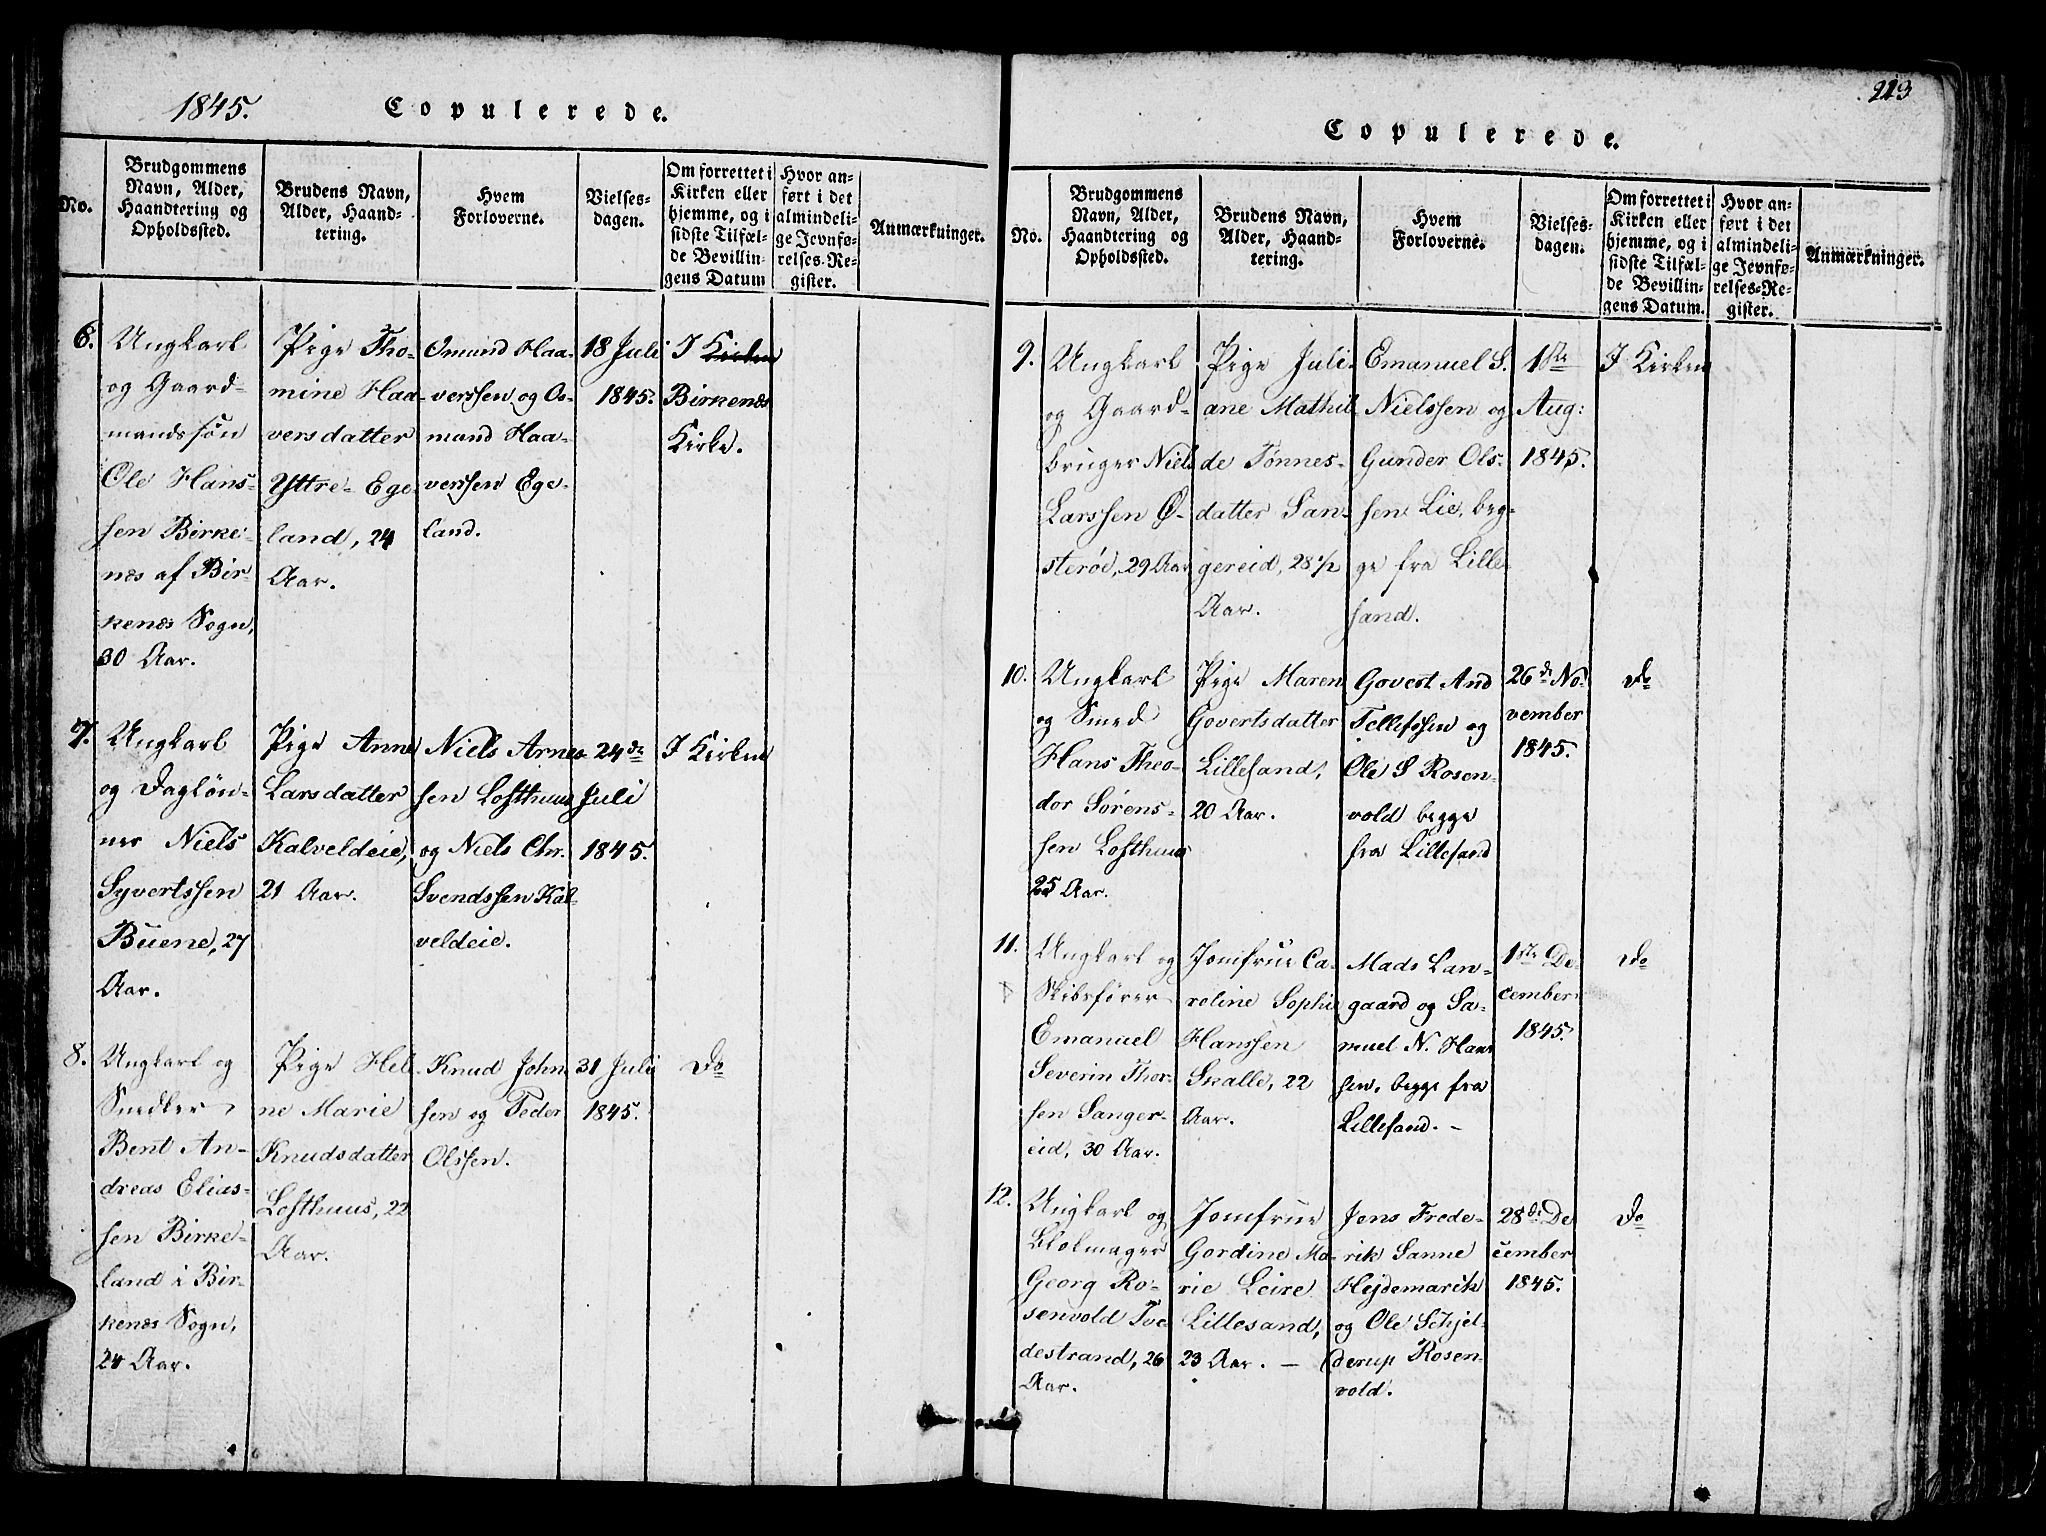 1845. Copulerede.
No.
Brudgommens
Navn, Alder,
Haandtering og
Opholdssted.
Brudens Navn,
Alder, Haand-
tering.
Hvem
Forloverne.
Vielses-
dagen.
Om forrettet i
Kirken eller
hjemme, og i
sidste Tilfæl-
de Bevillin-
gens Datum
Hvor an-
ført i det
almindeli-
ge Jevnfø-
relses-Re-
gister.
Anmærkninger.
6.
Ungkarl
og Gaard-
mandssøn
Ole Hans-
sen Birke-
nes af Bir-
kenes Sogn,
30 Aar.
Pige Tho-
mine Haa-
versdatter
Yttre-Ege-
land, 24
Aar.
Omund Haa-
verssen og Os-
mund Haa-
verssen Ege-
land.
18 Juli
1845.
I Kirken
Birkenæs
Kirke.
7.
Ungkarl
og Dagløn-
ner Niels
Syvertssen
Buene, 27
Aar.
Pige Anne
Larsdatter
Kalveldeie,
21 Aar.
Niels Arnes-
sen Lofthuus
og Niels Chr.
Svendssen Kal-
veldeie.
24de
Juli
1845.
I Kirken
8.
Ungkarl og
Snedker
Bent An-
dreas Elias-
sen Birke-
land i Bir-
kenes Sogn,
24 Aar.
Pige Hele-
ne Marie
Knudsdatter
Lofthuus, 22
Aar.
Knud John-
sen og Peder
Olssen.
31 Juli
1845.
Do
213
Copulerede.
No.
Brudgommens
Navn, Alder,
Haandtering og
Opholdssted.
Brudens Navn,
Alder, Haand-
tering.
Hvem
Forloverne.
Vielses-
dagen.
Om forrettet i
Kirken eller
hjemme, og i
sidste Tilfæl-
de Bevillin-
gens Datum.
Hvor an-
ført i det
almindeli-
ge Jevnfø-
relses-Re-
gister.
Anmærkninger.
9.
Ungkarl
og Gaard-
bruger Niels
Larssen Ø-
sterøe, 29 Aar
Pige Juli-
ane Mathil-
de Tønnes-
datter San-
gereid, 28 1/2
Aar.
Emanuel S.
Nielssen og
Gunder Ols-
sen Lie, beg-
ge fra Lille-
sand.
1ste
Aug:
1845.
I Kirken
10.
Ungkarl
og Smed
Hans Theo-
dor Sørens-
sen Lofthuus
25 Aar.
Pige Maren
Govertsdatter
Lillesand,
20 Aar.
Govert And
Tellefssen og
Ole S Rosen-
vold begge
fra Lillesand
26de No-
vember
1845.
Do
11.
Ungkarl og
Skibsfører
Emanuel
Severin Thor-
sen Sanger-
eid, 30 Aar.
Jomfrue Ca-
roline Sophie
Hanssen
Skalle, 22
Aar.
Mads Lan-
gaard og Sa-
muel N. Hans
sen, begge fra
Lillesand. -
1ste De-
cember
1845.
Do
12.
Ungkarl og
Blokmager
Georg Ro-
senvold Tve-
destrand, 26
Aar.
Jomfrue
Gordine Ma-
rie Leire
Lillesand,
23 Aar. -
Jens Frede-
rik Sanne
Hejdemarck
og Ole Schjel-
derup Rosen-
vold.
28de De
cember
1845.
Do